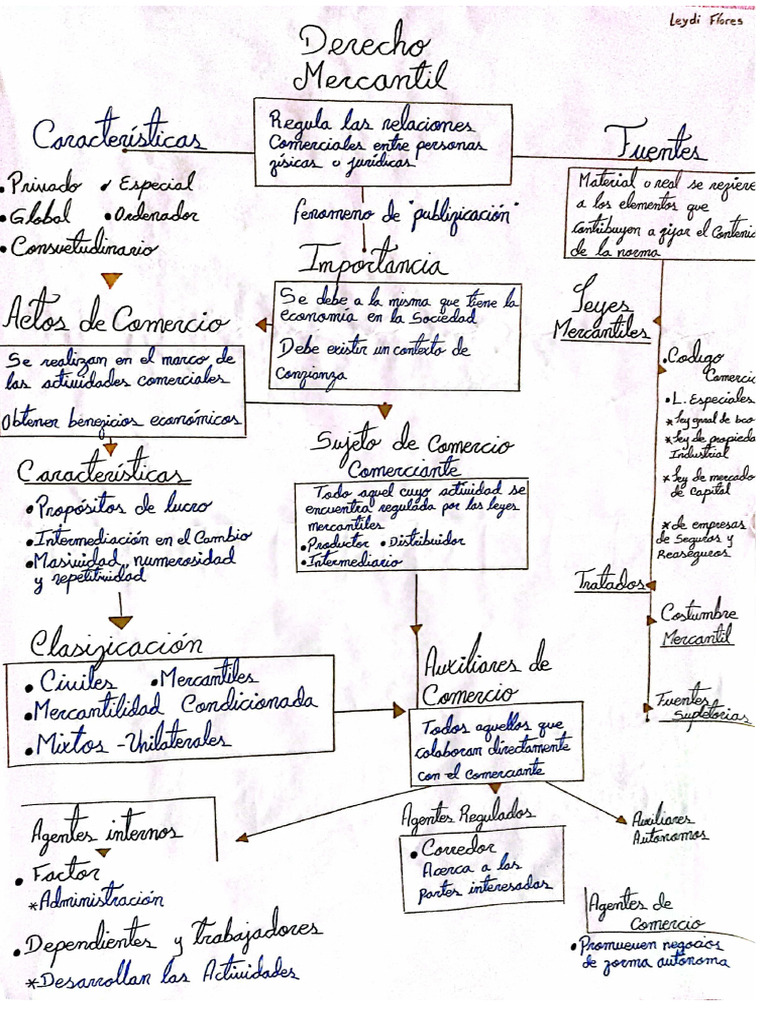 Leydi Flores
Derecho
Mercantil
Regula las relaciones
Comerciales entre personas
físicas o jurídicas
Características
• Privado • Especial
• Global • Ordenador
• Consuetudinario
fenomeno de "publificación"
Importancia
Se debe a la misma que tiene la
economía en la Sociedad
Debe existir un contexto de
Confianza
Fuentes
Material o real se refiere
a los elementos que
Contribuyen a fijar el Conteni
de la norma
Leyes
Mercantiles
• Codigo
Comerci
• L. Especiales
* Ley gnral de bco
* Ley de propieda
Industrial
* Ley de mercado
de Capital
* de empresas
de Seguros y
Reaseguros
Tratados
Costumbre
Mercantil
Fuentes
Supletorias
Actos de Comercio
Se realizan en el marco de
las actividades comerciales
Obtener beneficios económicos
Características
• Propósitos de lucro
• Intermediación en el Cambio
• Masividad, numerosidad
y repetitividad
Sujeto de Comercio
Comerciante
Todo aquel cuyo actividad se
encuentra regulada por las leyes
mercantiles
• Productor • Distribuidor
• Intermediario
Clasificación
• Civiles • Mercantiles
• Mercantilidad Condicionada
• Mixtos - Unilaterales
Auxiliares de
Comercio
Todos aquellos que
colaboran directamente
con el comerciante
Agentes internos
• Factor
* Administración
• Dependientes y trabajadores
* Desarrollan las Actividades
Agentes Regulados
• Corredor
Acerca a las
partes interesadas
Auxiliares
Autonomos
Agentes de
Comercio
• Promueven negocios
de forma autónoma